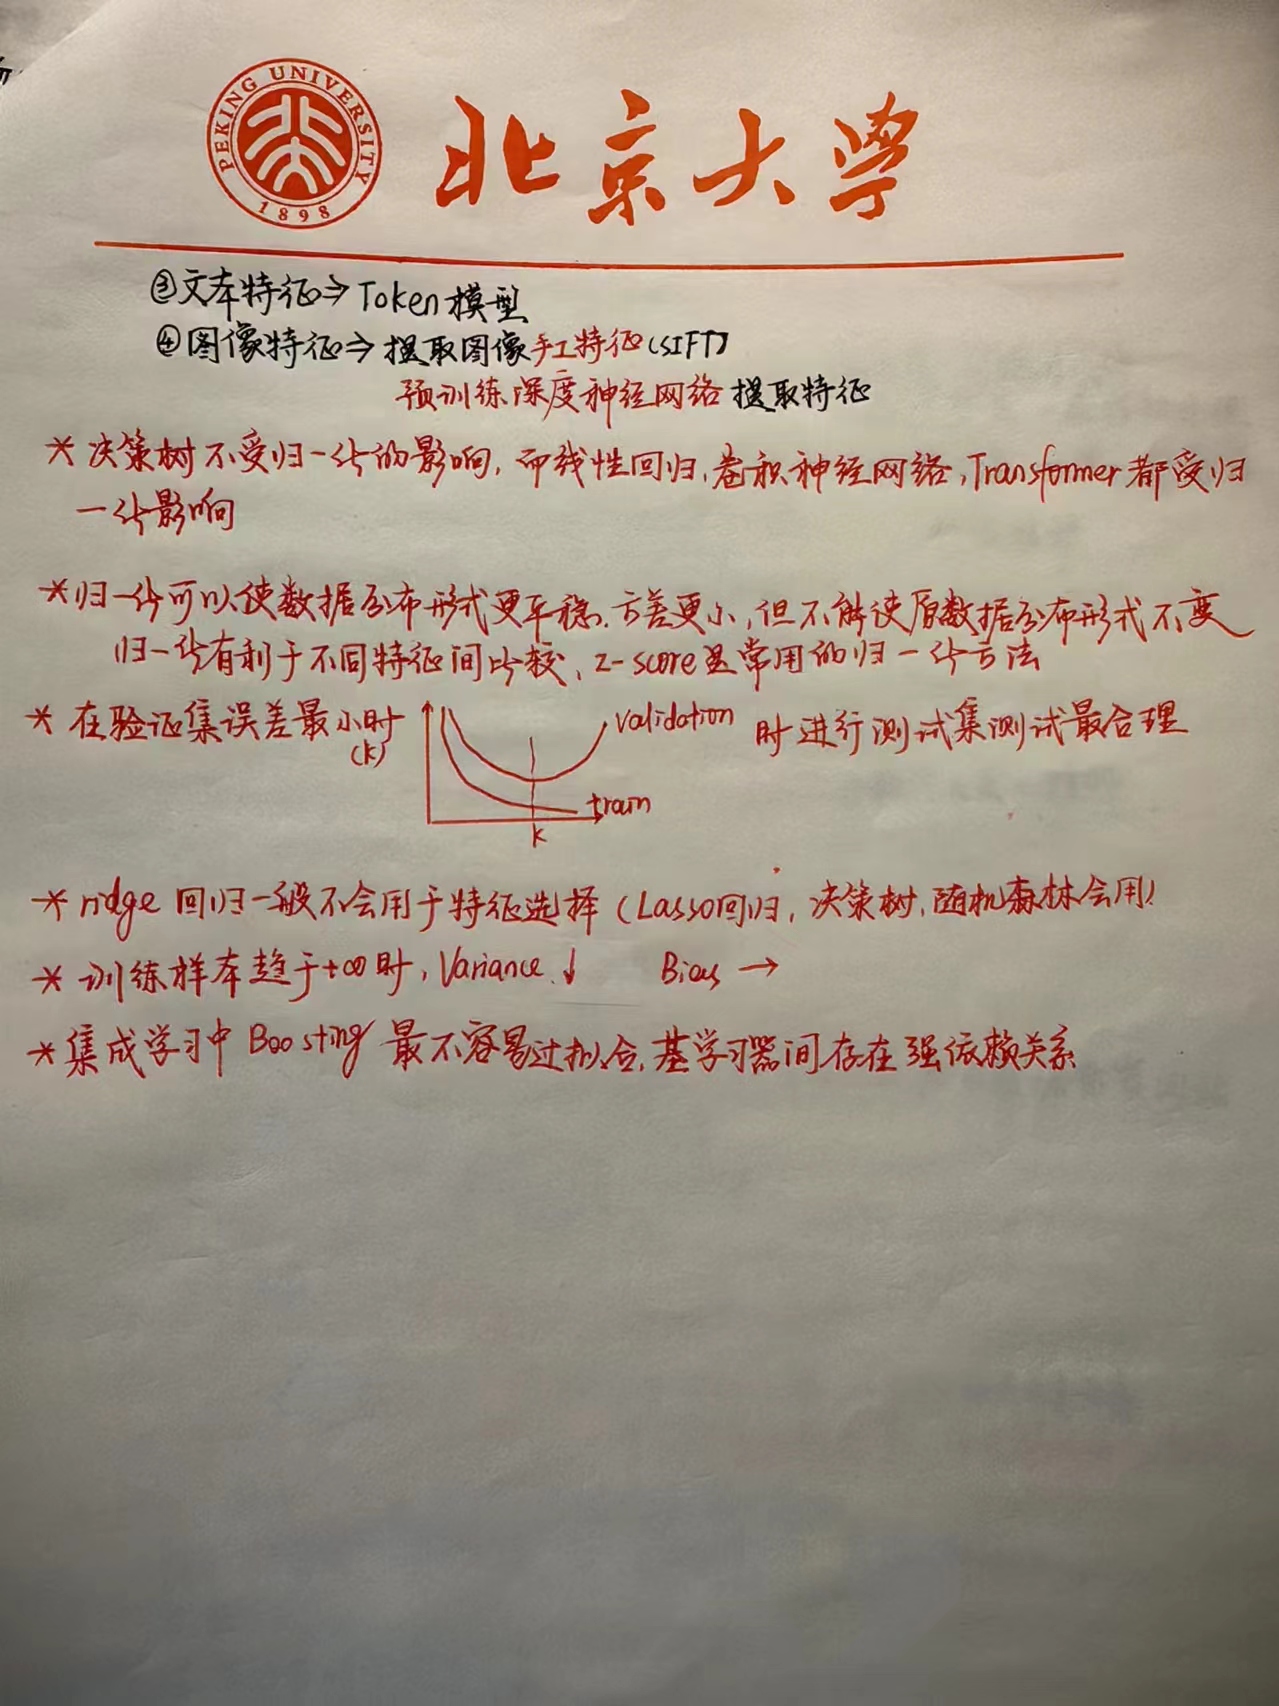 PEKING UNIVERSITY
1898
北京大学
③文本特征⇒Token模型
④图像特征⇒提取图像手工特征(SIFT)
预训练深度神经网络 提取特征
* 决策树不受归一化的影响, 而线性回归, 卷积神经网络, Transformer都受归
一化影响
* 归一化可以使数据分布形式更平稳. 方差更小, 但不能使原数据分布形式不变
归一化有利于不同特征间比较, z-score是常用的归一化方法
* 在验证集误差最小时 validation 时进行测试集测试最合理
(k)
train
k
* ridge 回归一般不会用于特征选择 (Lasso回归, 决策树, 随机森林会用)
* 训练样本趋于+∞时, Variance ↓ Bias →
* 集成学习中 Boosting 最不容易过拟合, 基学习器间存在强依赖关系